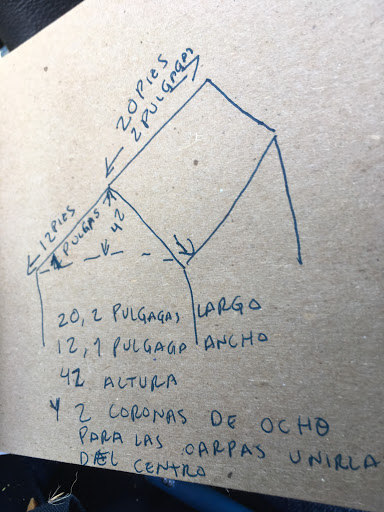 20 PIES
2 PULGAGAS
12 PIES
1 PULGAS
42
20, 2 PULGAGAS LARGO
12, 1 PULGAGA ANCHO
42 ALTURA
Y 2 CORONAS DE OCHO
PARA LAS CARPAS UNIRLA
DEL CENTRO